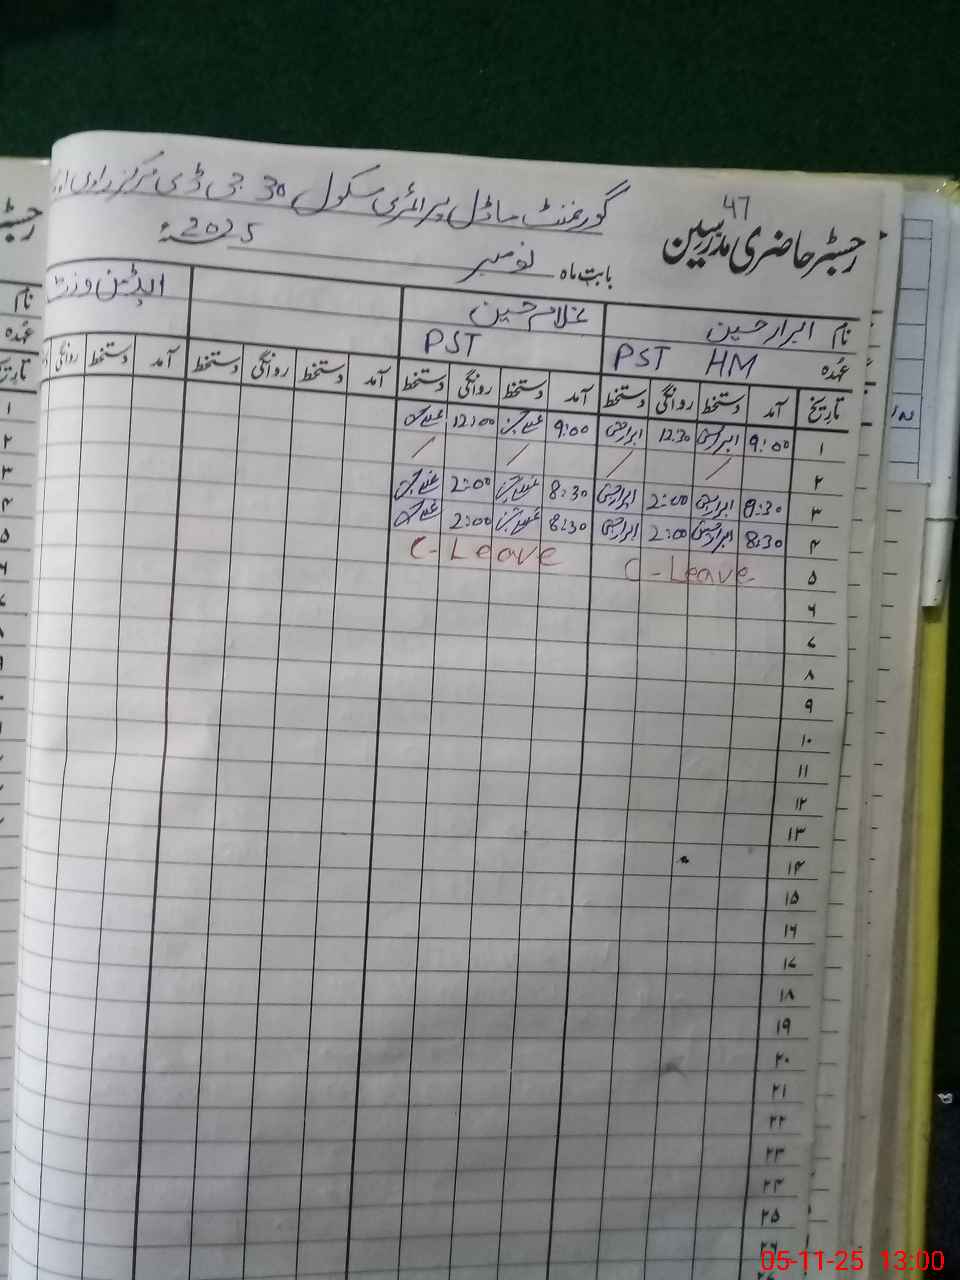 47
گورنمنٹ ماڈل پرائمری سکول 30 جی ڈی مرکز
رجسٹر حاضری مدرسین
بابت ماہ نومبر 2025ء
نام ابرار حسین غلام حسین
عہدہ PST HM PST
تاریخ آمد دستخط روانگی دستخط آمد دستخط روانگی دستخط آمد دستخط روانگی دستخط آمد دستخط روانگی
۱ 9:00 ابرار حسین 12:30 ابرار حسین 9:00 12:00
۲ / / / /
۳ 8:30 ابرار حسین 2:00 ابرار حسین 8:30 2:00
۴ 8:30 ابرار حسین 2:00 ابرار حسین 8:30 2:00
۵ C-Leave C-Leave
۶
۷
۸
۹
۱۰
۱۱
۱۲
۱۳
۱۴
۱۵
۱۶
۱۷
۱۸
۱۹
۲۰
۲۱
۲۲
۲۳
۲۴
۲۵
۲۶
05-11-25 13:00